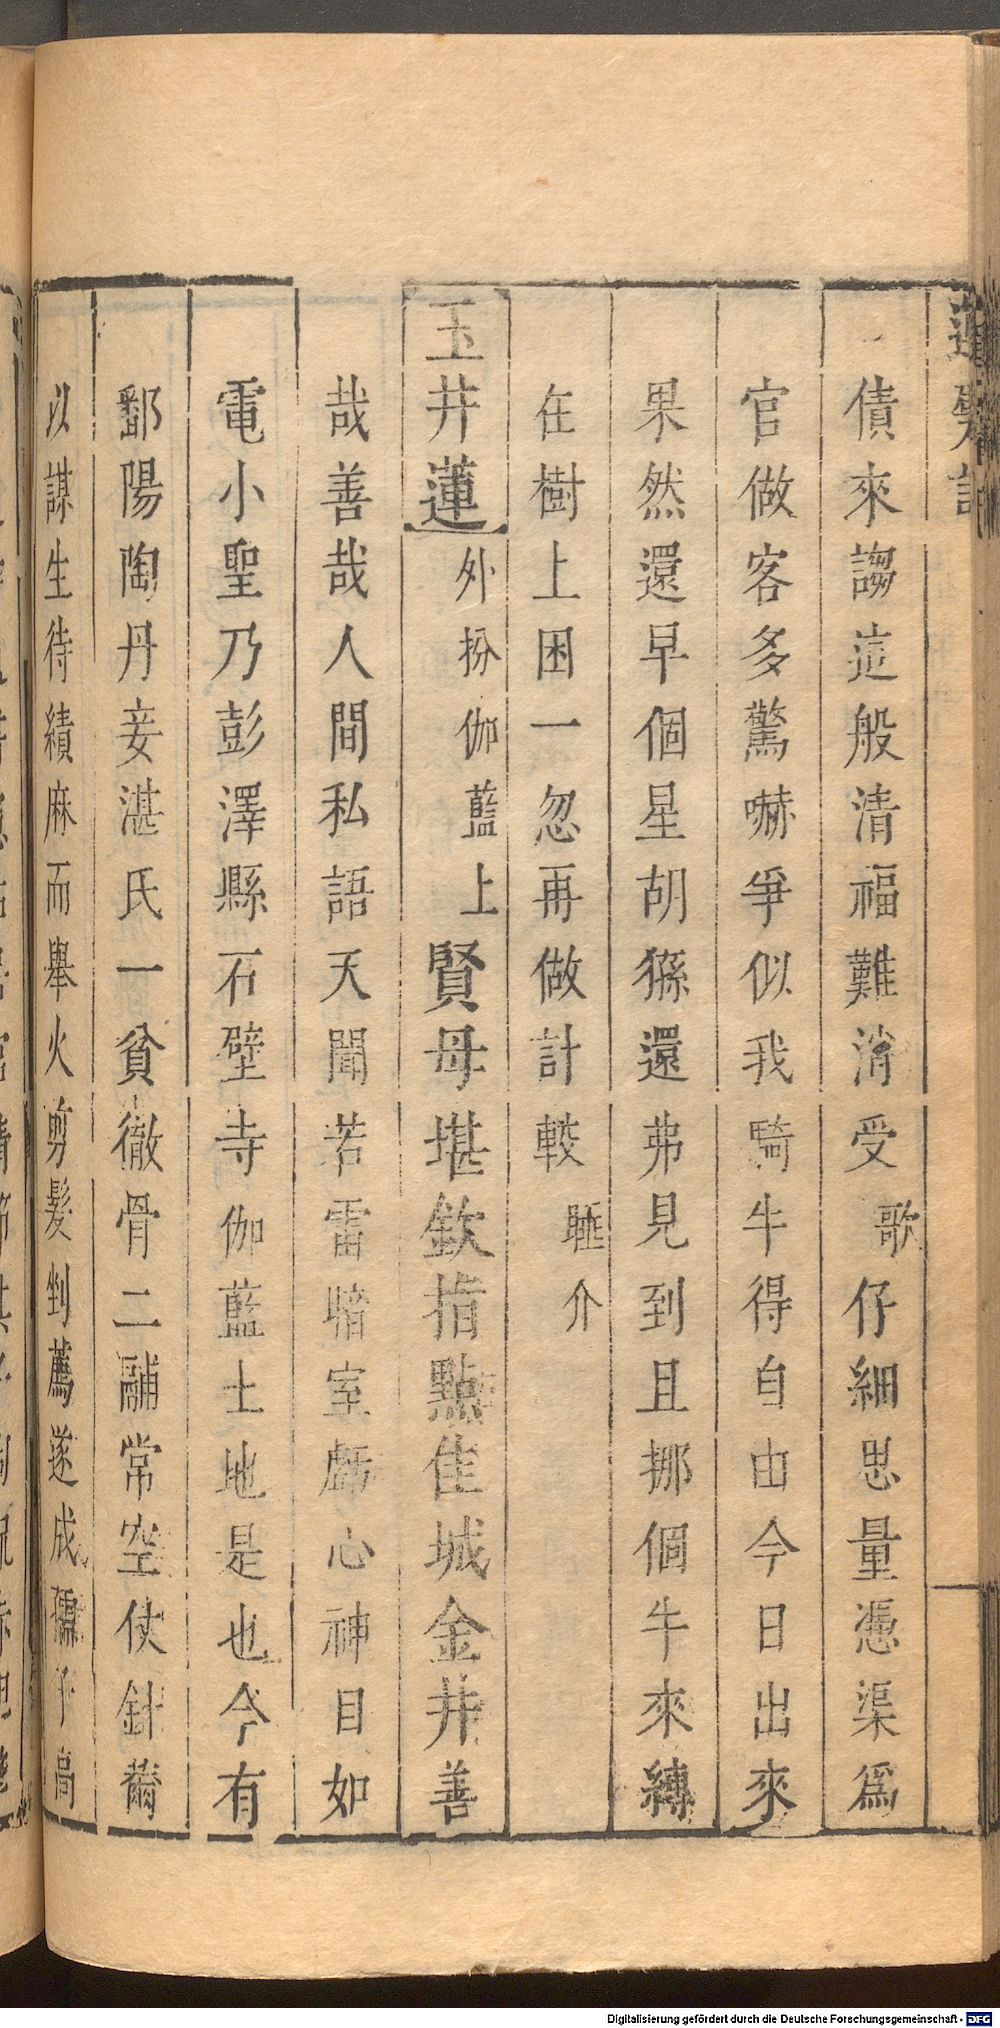 債來謅這般清福難消受歌仔細思量憑渠爲
官做客多驚嚇爭似我騎牛得自由今日出來
果然還早個星胡猻還弗見到且挪個牛來縳
在樹上困一忽再做計較睡介
玉井蓮外扮伽藍上賢母堪欽指點佳城金井善
哉善哉人間私語天聞若雷暗室虧心神目如
電小聖乃彭澤縣石壁寺伽藍土地是也今有
鄱陽陶丹妾湛氏一貧徹骨二鬴常空仗針黹
以謀生待績麻而舉火剪髮剉薦遂成孺子高
Digitalisierung gefördert durch die Deutsche Forschungsgemeinschaft - DFG